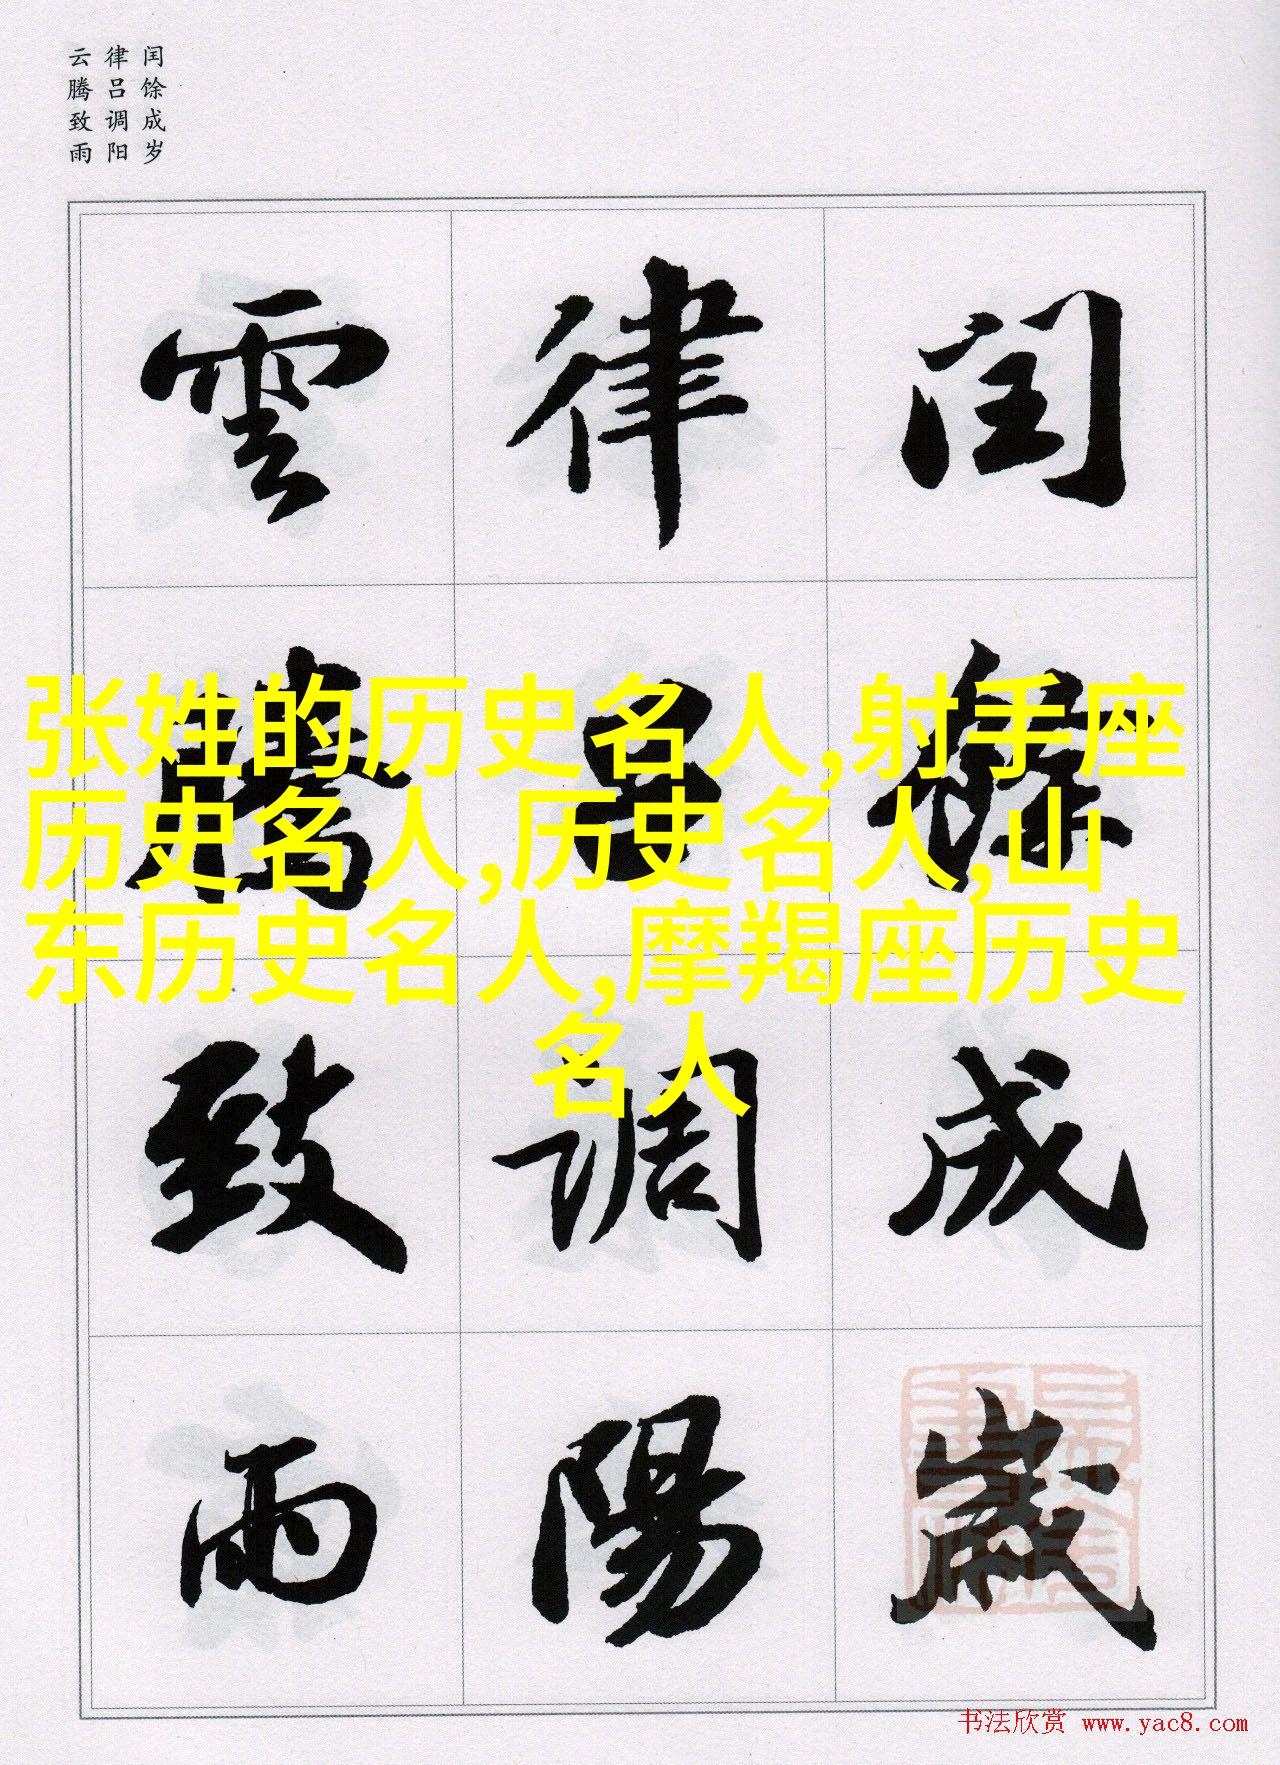 闰馀成岁
律吕调阳
云腾致雨
閏餘成歲
律呂調陽
雲騰致雨
张姓的历史名人,射手座
历史名人,历史名人,山
东历史名人,摩羯座历史
名人
书法欣赏 www.yac8.com